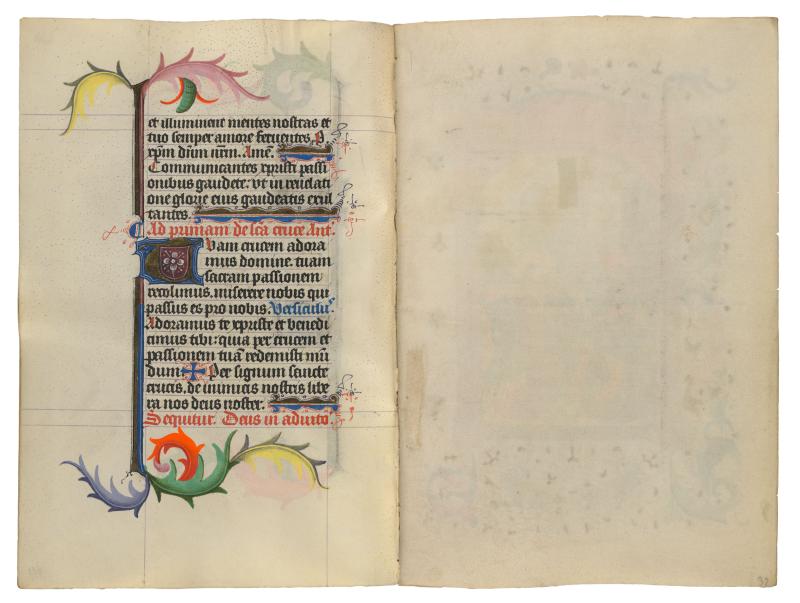 et illuminent mentes nostras et
tuo semper amore feruentes. P
xpm dnm nrm. Ame.
Communicantes xpristi passi
onibus gaudete: vt in reuelati
one glorie eius gaudeatis exul
tantes.
Ad primam de sca cruce Ant.
Tuam crucem adora
mus domine. tuam
sacram passionem
recolimus. miserere nobis qui
passus es pro nobis. Versiculus
Adoramus te xpriste et benedi
cimus tibi: quia per crucem et
passionem tuā redemisti mū
dum. Per signum sancte
crucis. de inimicis nostris libe
ra nos deus noster.
Sequitur. Deus in adiuto.
32